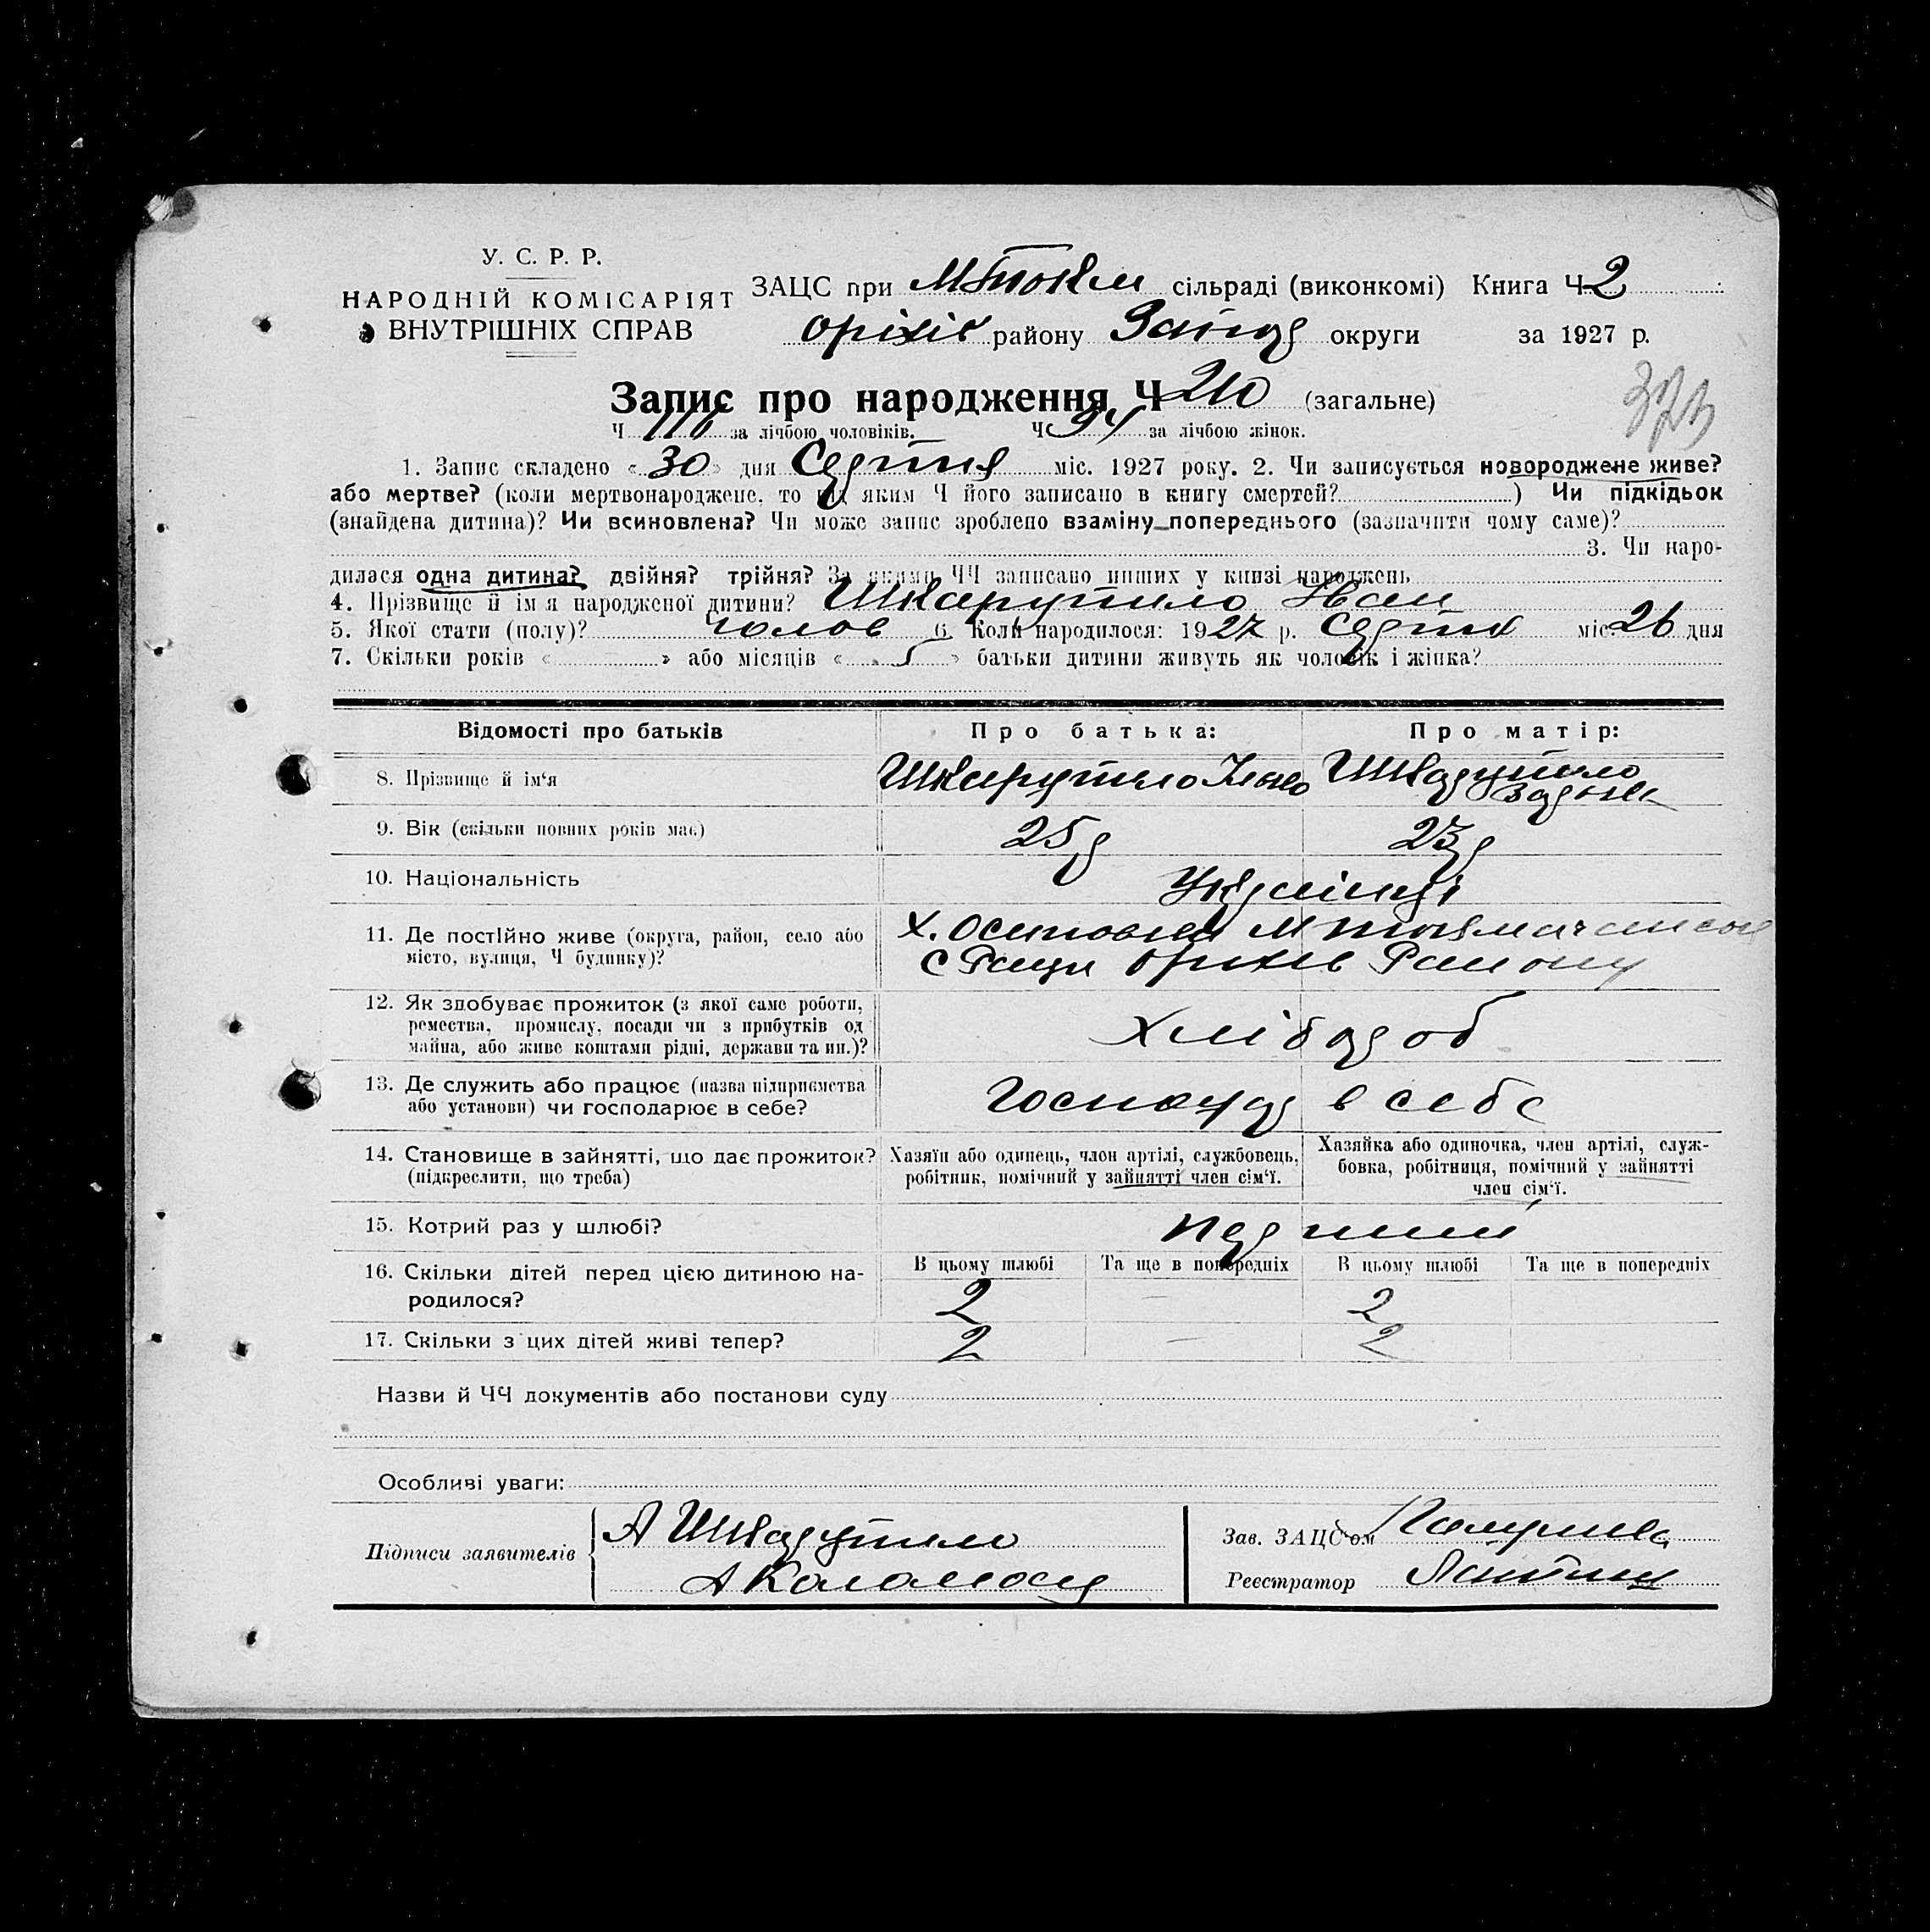 У. С. Р. Р.
НАРОДНІЙ КОМІСАРІЯТ
ВНУТРІШНІХ СПРАВ
ЗАЦС при МТокм сільраді (виконкомі) Книга Ч 2
Оріхів району Запор округи за 1927 р.
Запис про народження Ч 210 (загальне)
373
Ч 116 за лічбою чоловіків. Ч 94 за лічбою жінок.
1. Запис складено « 30 » дня Серпня міс. 1927 року. 2. Чи записується новороджене живе?
або мертве? (коли мертвонароджене, то під яким Ч його записано в книгу смертей? ) Чи підкідьок
(знайдена дитина)? Чи всиновлена? Чи може запис зроблено взаміну попереднього (зазначити чому саме)?
3. Чи наро-
дилася одна дитина? двійня? трійня? За якими ЧЧ записано инших у книзі народжень
4. Прізвище й ім'я народженої дитини? Шкарупило Іван
5. Якої стати (полу)? чолов 6. Коли народилося: 1927 р. Серпня міс. 26 дня
7. Скільки років « » або місяців « 5 » батьки дитини живуть як чоловік і жінка?
Відомості про батьків Про батька: Про матір:
8. Прізвище й ім'я Шкарупило Шкарупило
9. Вік (скільки повних років має) 25р 23р
10. Національність Українці
11. Де постійно живе (округа, район, село або Х. Осиповка М
місто, вулиця, Ч будинку)? С Ради Оріхів Району
12. Як здобуває прожиток (з якої саме роботи,
ремества, промислу, посади чи з прибутків од Хлібороб
майна, або живе коштами рідні, держави та ин.)?
13. Де служить або працює (назва підприємства
або установи) чи господарює в себе? Господар в себе
14. Становище в зайнятті, що дає прожиток? Хазяїн або одинець, член артілі, службовець, Хазяйка або одиночка, член артілі, служ-
(підкреслити, що треба) робітник, помічний у зайнятті член сім'ї. бовка, робітниця, помічний у зайнятті
член сім'ї.
15. Котрий раз у шлюбі? Перший
16. Скільки дітей перед цією дитиною на- В цьому шлюбі Та ще в попередніх В цьому шлюбі Та ще в попередніх
родилося? 2 — 2
17. Скільки з цих дітей живі тепер? 2 — 2
Назви й ЧЧ документів або постанови суду
Особливі уваги:
Підписи заявителів А Шкарупило
Зав. ЗАЦС'ом
Реєстратор